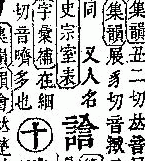 集韻丑二切𠀤音
集韻展豸切音
同　又人名
史宗室表
十
字彙補在細
切音嚌多也